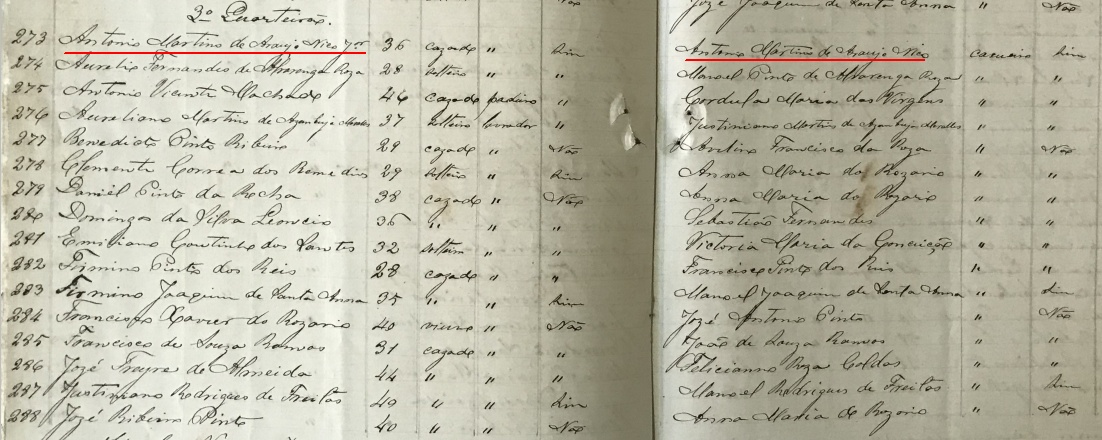 2º Quarteirão.
Não
José Joaquim de Santa Anna " Não
273 Antonio Martins de Araujo Nico Jor 36 cazado " Sim Antonio Martins de Araujo Nico Sim
274 Aurelio Fernandes de Alvarenga Roza 28 solteiro " " Manoel Pinto de Alvarenga Roza " "
275 Antonio Vicente Machado 46 cazado " Cordula Maria das Virgens " "
276 Aureliano Martins de Azambuja Meirelles 37 solteiro lavrador " Justiniano Martins de Azambuja Meirelles " "
277 Benedicto Pinto Ribeiro 29 cazado " Não Avelino Francisco da Roza " Não
278 Clemente Correa dos Remedios 29 solteiro " Sim Anna Maria do Rozario " "
279 Daniel Pinto da Rocha 38 cazado " Não Anna Maria do Rozario " "
280 Domingos da Silva Leoncio 36 " " " Sebastião Fernandes " "
281 Emiliano Coutinho dos Santos 32 solteiro " " Victoria Maria da Conceição " "
282 Firmino Pinto dos Reis 28 cazado " " Francisco Pinto dos Reis " "
283 Firmino Joaquim de Santa Anna 35 " " Sim Manoel Joaquim de Santa Anna " Sim
284 Francisco Xavier do Rozario 40 viuvo " Não Jozé Antonio Pinto " Não
285 Francisco de Souza Ramos 31 cazado " " João de Souza Ramos " "
286 Jozé Freyre de Almeida 44 " " " Feliciano Roza Caldas " "
287 Justiniano Rodrigues de Freitas 49 " " Sim Manoel Rodrigues de Freitas " Sim
288 Jozé Ribeiro Pinto 40 " " Não Anna Maria do Rozario " Não